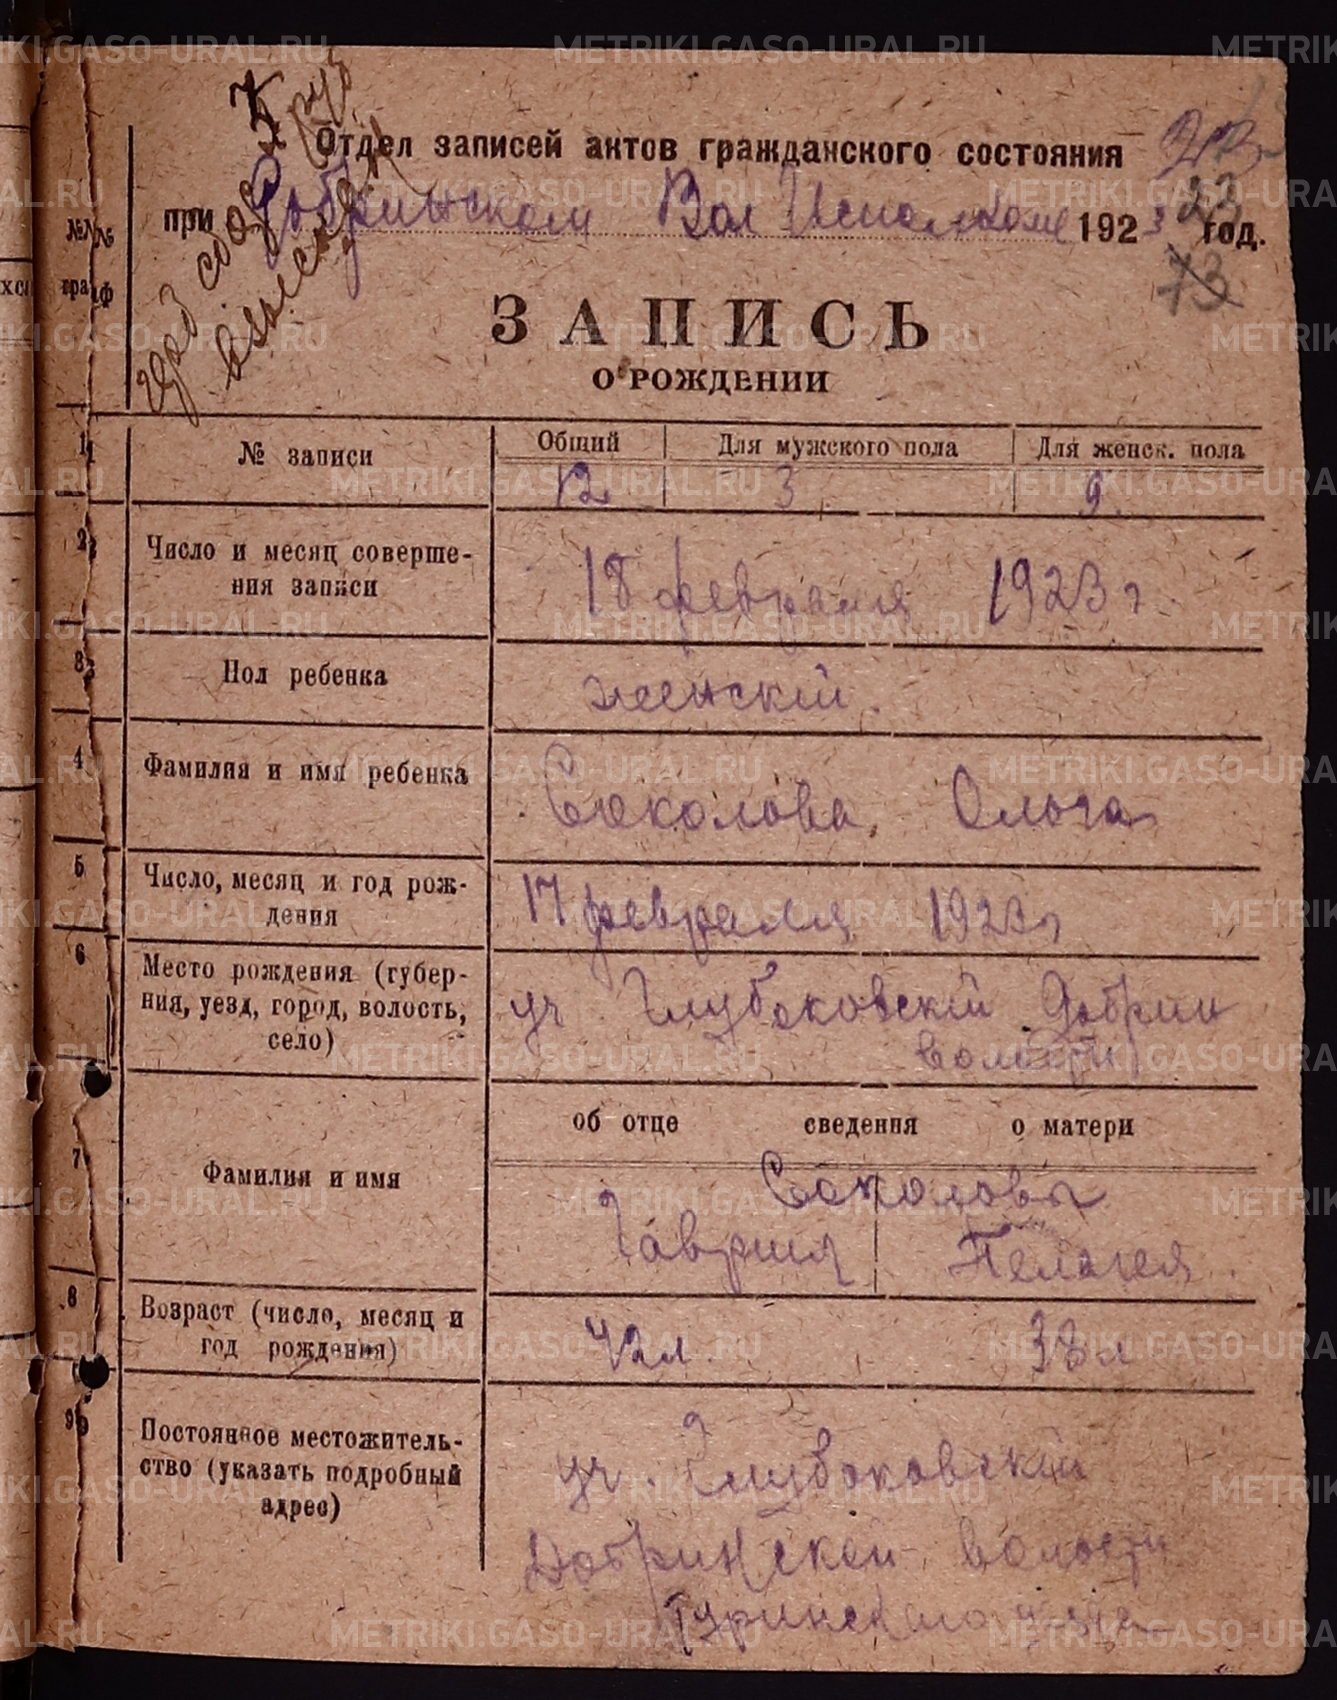 Отдел записей актов гражданского состояния
при Добринском Вол Исполкоме 1923 год.
23
73
№№
граф
ЗАПИСЬ
О РОЖДЕНИИ
1 № записи Общий Для мужского пола Для женск. пола
12 3 9.
2 Число и месяц соверше-
ния записи
18 февраля 1923 г.
3 Пол ребенка женскій.
4 Фамилия и имя ребенка Соколова, Ольга
5 Число, месяц и год рож-
дения
17 февраля 1923 г
6 Место рождения (губер-
ния, уезд, город, волость,
село)
уч Глубоковскій Добрин
волости
об отце сведения о матери
7 Фамилия и имя
Соколовы
Гавриил Пелагея.
8 Возраст (число, месяц и
год рождения)
42 л. 38 л
9 Постоянное местожитель-
ство (указать подробный
адрес)
уч. Глубоковскій
Добринской волости
Туринскаго уезда
METRIKI.GASO-URAL.RU